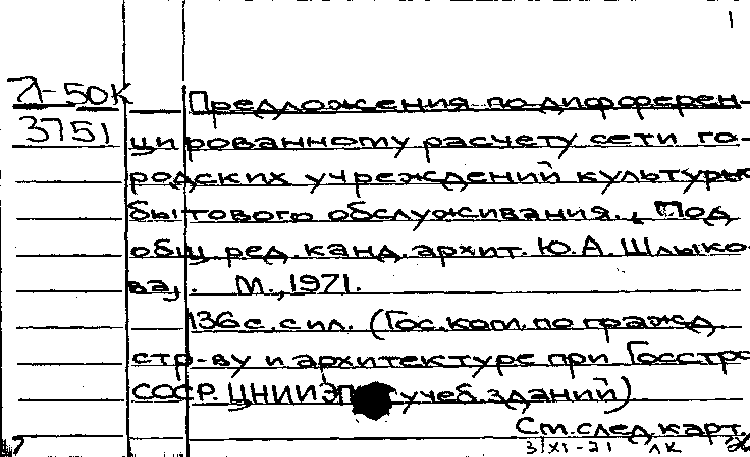 1
Л-50К
3751
Предложения по дифферен-
цированному расчету сети го-
родских учреждений культурно-
бытового обслуживания., Под
общ. ред. канд. архит. Ю.А. Шлыко-
ва,. М., 1971.
136 с. с ил. (Гос. ком. по гражд.
стр-ву и архитектуре при Госстрое
СССР. ЦНИИЭП учеб. зданий)
См. след. карт.
3/XI-21 ЛК